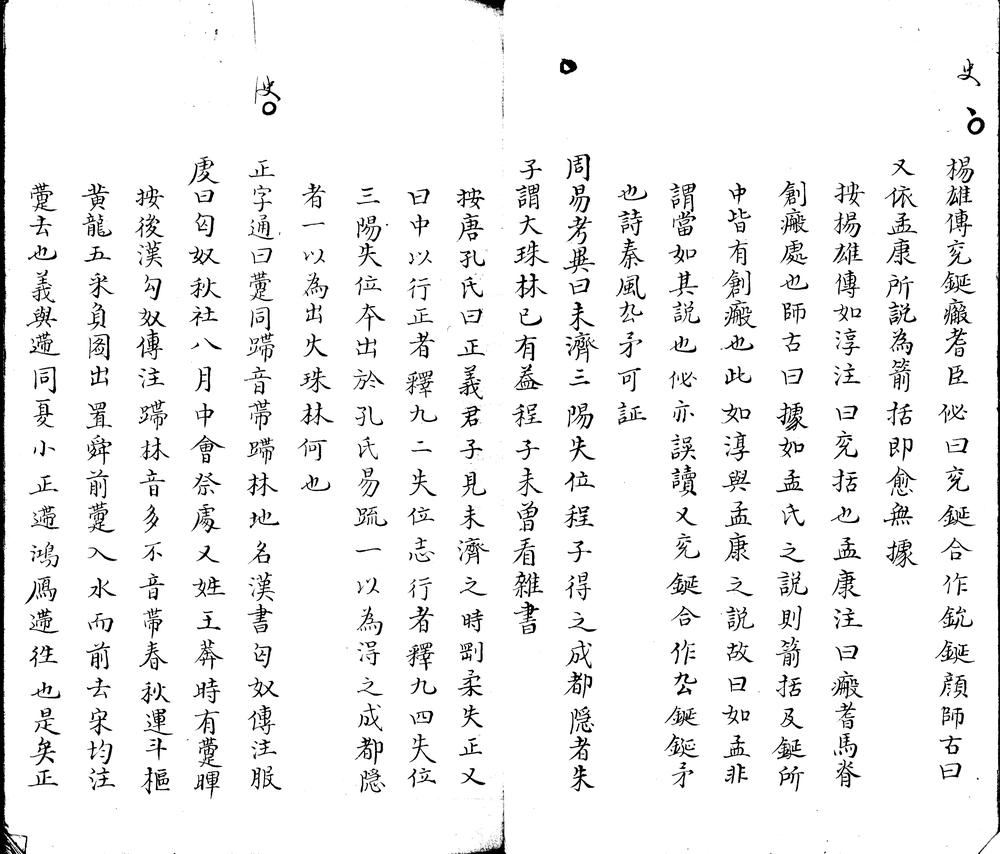 史
楊雄傳兖鋋瘢耆臣佖曰兖鋋合作鈗鋋顔師古曰
又依孟康所説為箭括即愈無據
按揚雄傳如淳注曰兖括也孟康注曰瘢耆馬脊
創瘢處也師古曰據如孟氏之説則箭括及鋋所
中皆有創瘢也此如淳與孟康之説故曰如孟非
謂當如其説也佖亦誤讀又兖鋋合作厹鋋鋋矛
也詩秦風厹矛可証
周易考異曰未濟三陽失位程子得之成都隱者朱
子謂大珠林已有葢程子未曾看雜書
按唐孔氏曰正義君子見未濟之時剛柔失正又
曰中以行正者釋九二失位志行者釋九四失位
三陽失位夲出於孔氏易䟽一以為淂之成都隠
者一以為出火珠林何也
史
正字通曰䠠同蹛音帶蹛林地名漢書匈奴傳注服
虔曰匈奴秋社八月中會祭處又姓王莽時有䠠暉
按後漢匈奴傳注蹛林音多不音帶春秋運斗樞
黄龍五采負圖出置舜前䠠入水而前去宋均注
䠠去也義與遰同夏小正遰鴻鴈遰徃也是矣正